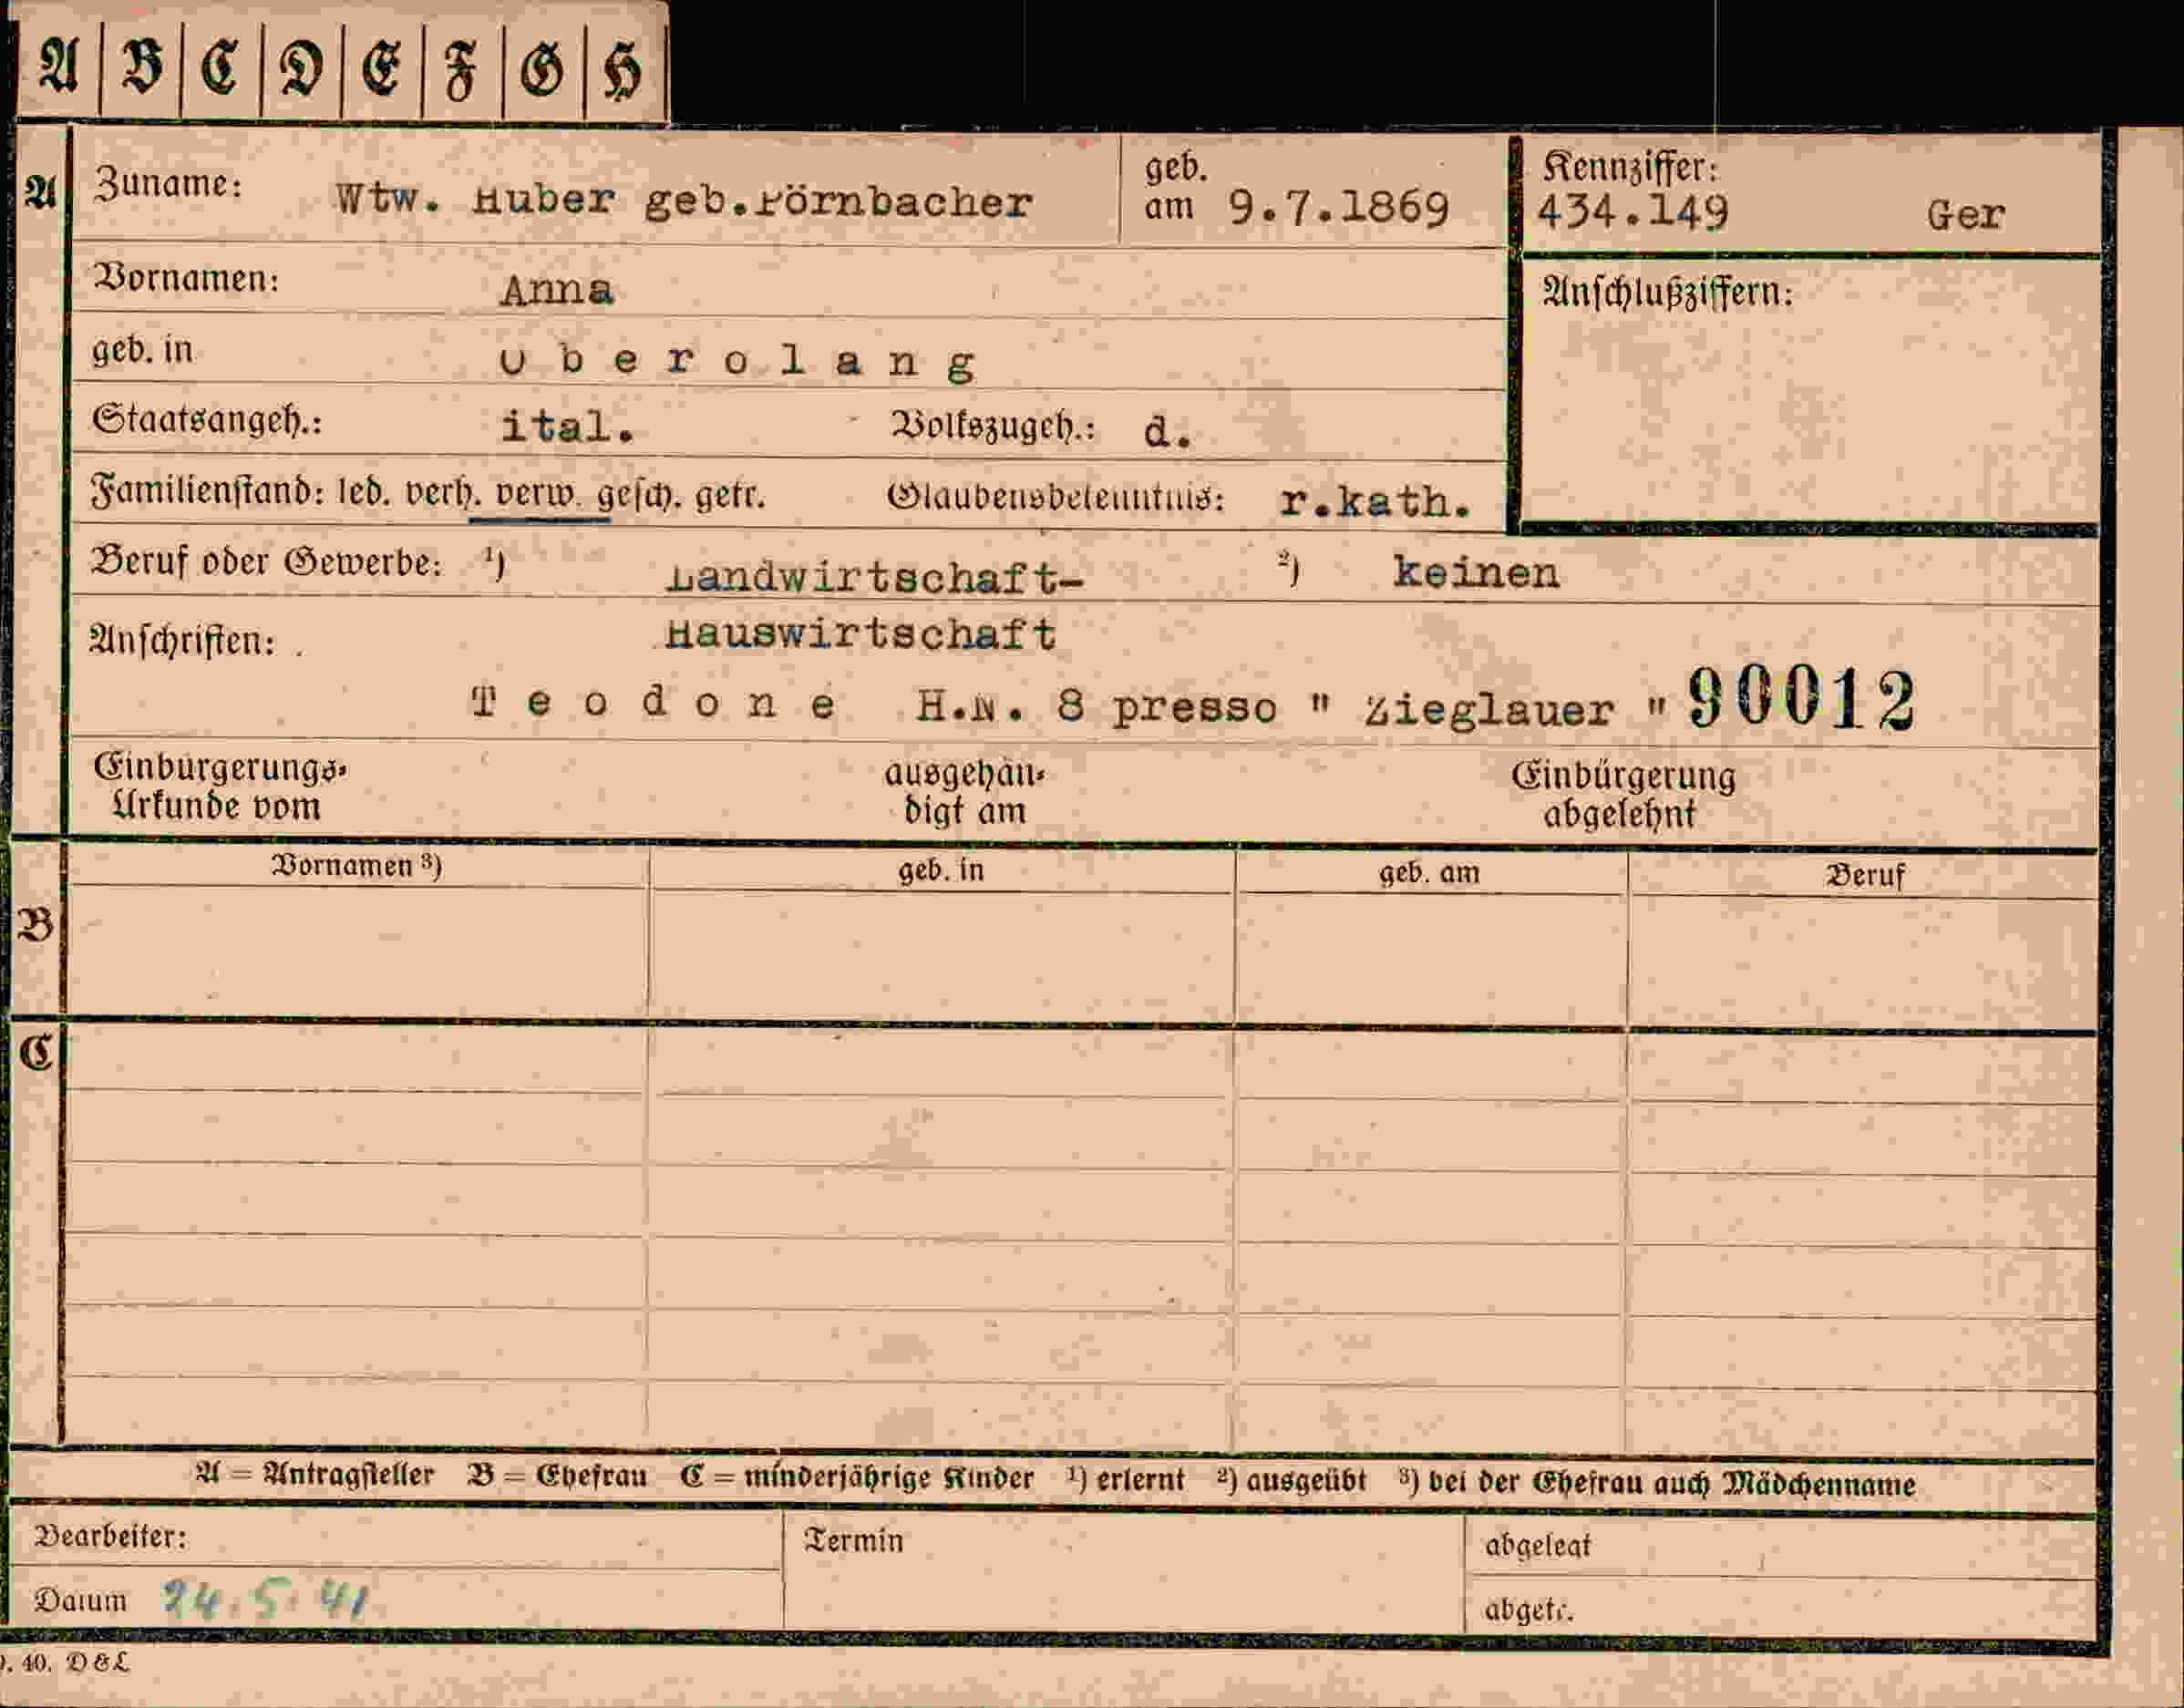 A B C D E F G H
A Zuname: Wtw. Huber geb.Pörnbacher geb. am 9.7.1869 Kennziffer: 434.149 Ger
Vornamen: Anna Anschlußziffern:
geb. in Oberolang
Staatsangeh.: ital. Volkszugeh.: d.
Familienstand: led. verh. verw. gesch. getr. Glaubensbekenntnis: r.kath.
Beruf oder Gewerbe: ¹) Landwirtschaft- ²) keinen
Anschriften: Hauswirtschaft
Teodone H.N. 8 presso " Zieglauer " 90012
Einbürgerungs- ausgehän- Einbürgerung
Urkunde vom digt am abgelehnt
Vornamen ³) geb. in geb. am Beruf
B
C
A = Antragsteller B = Ehefrau C = minderjährige Kinder ¹) erlernt ²) ausgeübt ³) bei der Ehefrau auch Mädchenname
Bearbeiter: Termin abgelegt
Datum 24.5.41 abgetr.
. 40. D & L